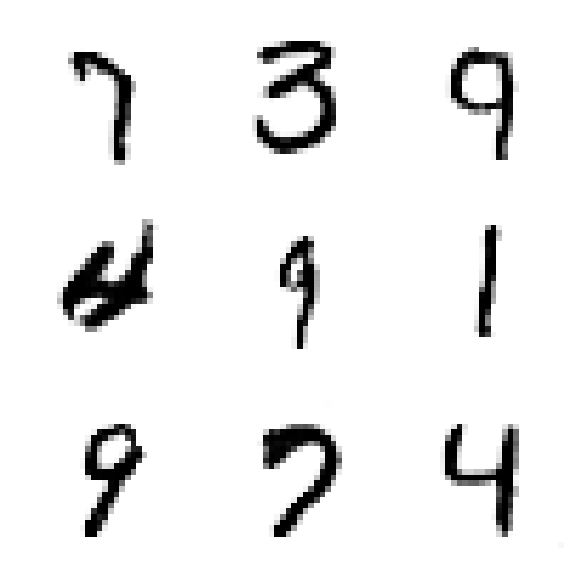 7 3 9
9 1
9 7 4